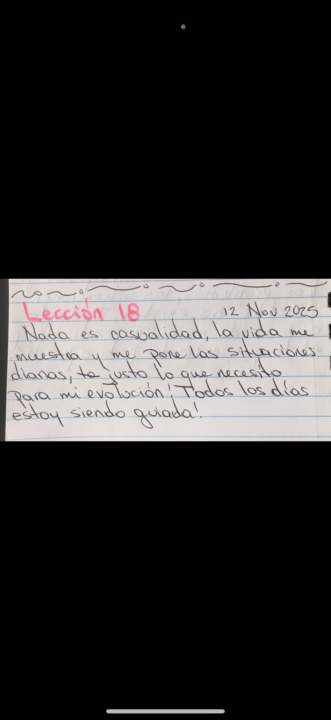 Lección 18 12 Nov 2025
Nada es casualidad, la vida me
muestra y me pone las situaciones
diarias, justo lo que necesito
para mi evolución! Todos los días
estoy siendo guiada!